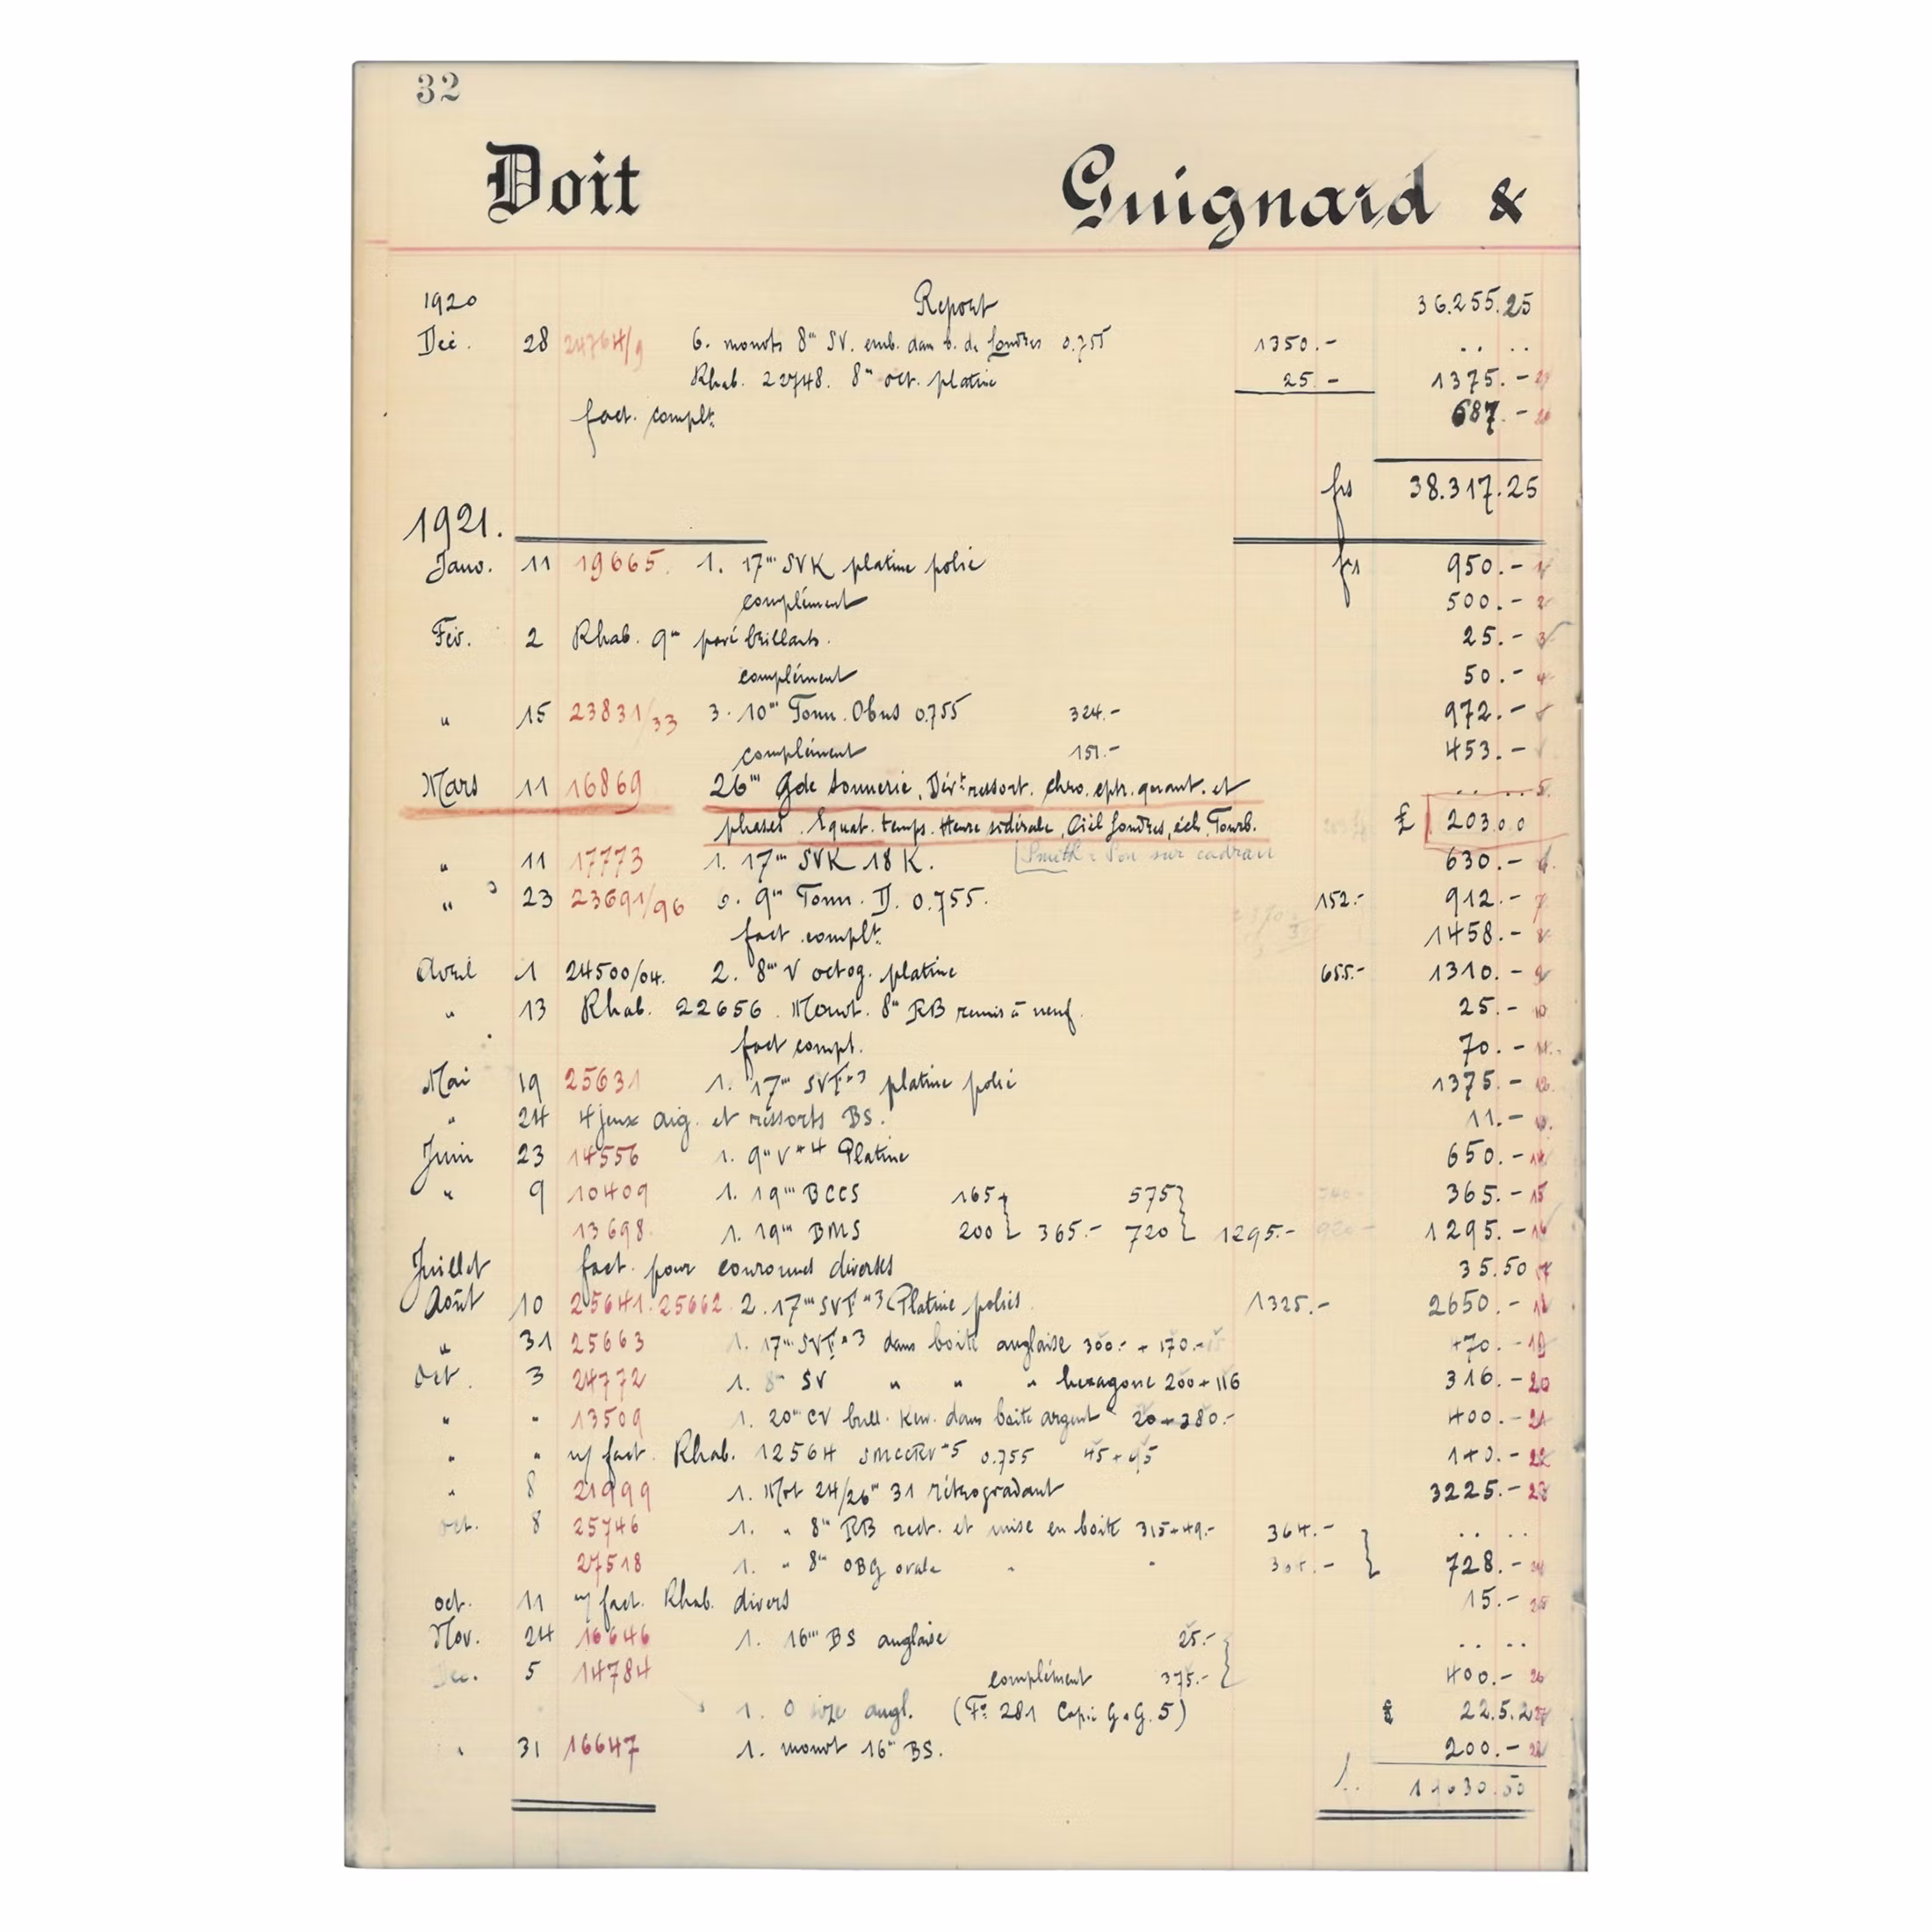 32
Doit Guignard &
1920 Report 36.255.25
Déc. 28 24764/9 6. monots 8''' SV. emb. dans b. de Londres 0.755 1350.- .. ..
Rhab. 22748. 8''' oct. platine 25.- 1375.-
fact. complt. 687.-
frs 38.317.25
1921.
Janv. 11 19665. 1. 17''' SVK platine polie frs 950.- 1
complément 500.- 2
Fév. 2 Rhab. 9''' pavé brillants. 25.- 3
complément 50.- 4
" 15 23831/33 3. 10''' Tonn. Obus 0.755 324.- 972.-
complément 151.- 453.-
Mars 11 16869 26''' Gde sonnerie, Dble ressort. chro. cptr. quant. et .. .. 5.
phases. Equat. temps. Heure sidérale, Ciel Londres, éch. Tourb. £ 203 0 0
" 11 17773 1. 17''' SVK 18 K. [Smith & Son sur cadran 630.- 6.
" 23 23691/96 9''' Tonn. D. 0.755. 152.- 912.- 7
fact. complt. 1458.- 8
Avril 1 24500/04. 2. 8''' V octog. platine 655.- 1310.- 9
" 13 Rhab. 22656. Mouvt. 8''' RB remis à neuf. 25.- 10
fact compl. 70.- 11.
Mai 19 25631 1. 17''' SVF #3 platine polie 1375.- 12
" 24 4 jeux aig. et ressorts BS. 11.-
Juin 23 14556 1. 9''' V #4 Platine 650.- 14
" 9 10409 1. 19''' BCCS 165 575} 365.- 15
13698 1. 19''' BMS 200} 365.- 720} 1295.- 1295.- 16
Juillet fact. pour couronnes diverses 35.50
Août 10 25641.25662. 2. 17''' SVF #3 Platine polies 1325.- 2650.- 18
" 31 25663 1. 17''' SVF #3 dans boite anglaise 300.- + 170.- 470.- 19
Oct. 3 24772 1. 8''' SV " " " hexagone 200 + 116 316.- 20
" " 13509 1. 20''' CV bull. Kew. dans boite argent 20 + 380.- 400.- 21
" " n/ fact. Rhab. 12564 SMCCRV #5 0.755 45 + 95 140.- 22
" 8 21999 1. Mvt 24/26''' 31 rétrogradant 3225.- 23
oct. 8 25746 1. " 8''' RB rect. et mise en boite 315 + 49.- 364.- .. ..
27518 1. " 8''' OBG ovale " " 364.- } 728.-
oct. 11 n/ fact. Rhab. divers 15.- 25
Nov. 24 16646 1. 16''' BS anglaise 25.- .. ..
Dec. 5 14784 complément 375.-} 400.- 26
1. 0 size angl. (F° 281 Copie G.G. 5) £ 22.5.2
" 31 16647 1. mouvt 16''' BS. 200.-